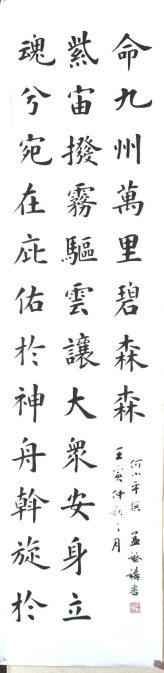 魂兮宛在庇佑於神舟斡旋於
紫宙撥霧驅雲讓大眾安身立
命九州萬里碧森森
壬寅仲秋之月
何小平撰 書